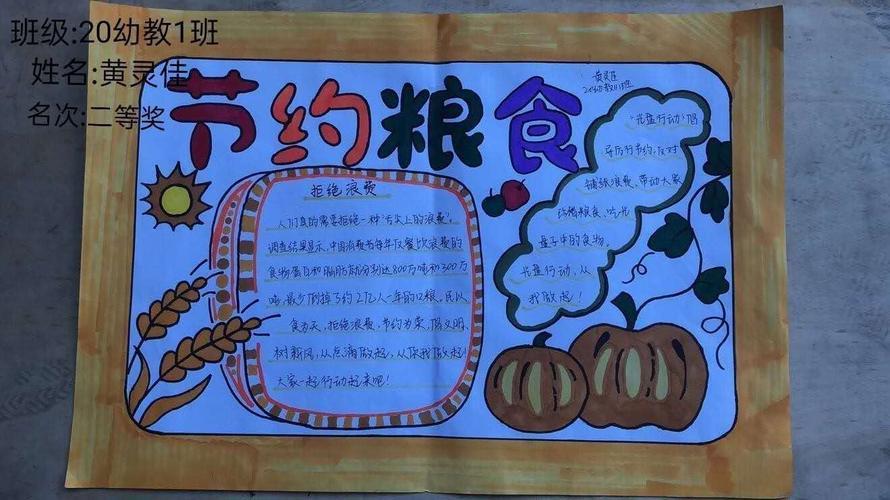 班级:20幼教1班
姓名:黄灵佳
名次:二等奖
节约粮食
黄灵佳
20幼教1班
拒绝浪费
人们真的需要拒绝一种“舌尖上的浪费”。
调查结果显示,中国消费者每年仅餐饮浪费的
食物蛋白和脂肪就分别达800万吨和300万
吨,最少倒掉了约2亿人一年的口粮,民以
食为天,拒绝浪费,节约为荣,倡文明,
树新风,从点滴做起,从你我做起!
大家一起行动起来吧!
“光盘行动”倡
导厉行节约,反对
铺张浪费,带动大家
珍惜粮食、吃光
盘子中的食物。
光盘行动,从
我做起!